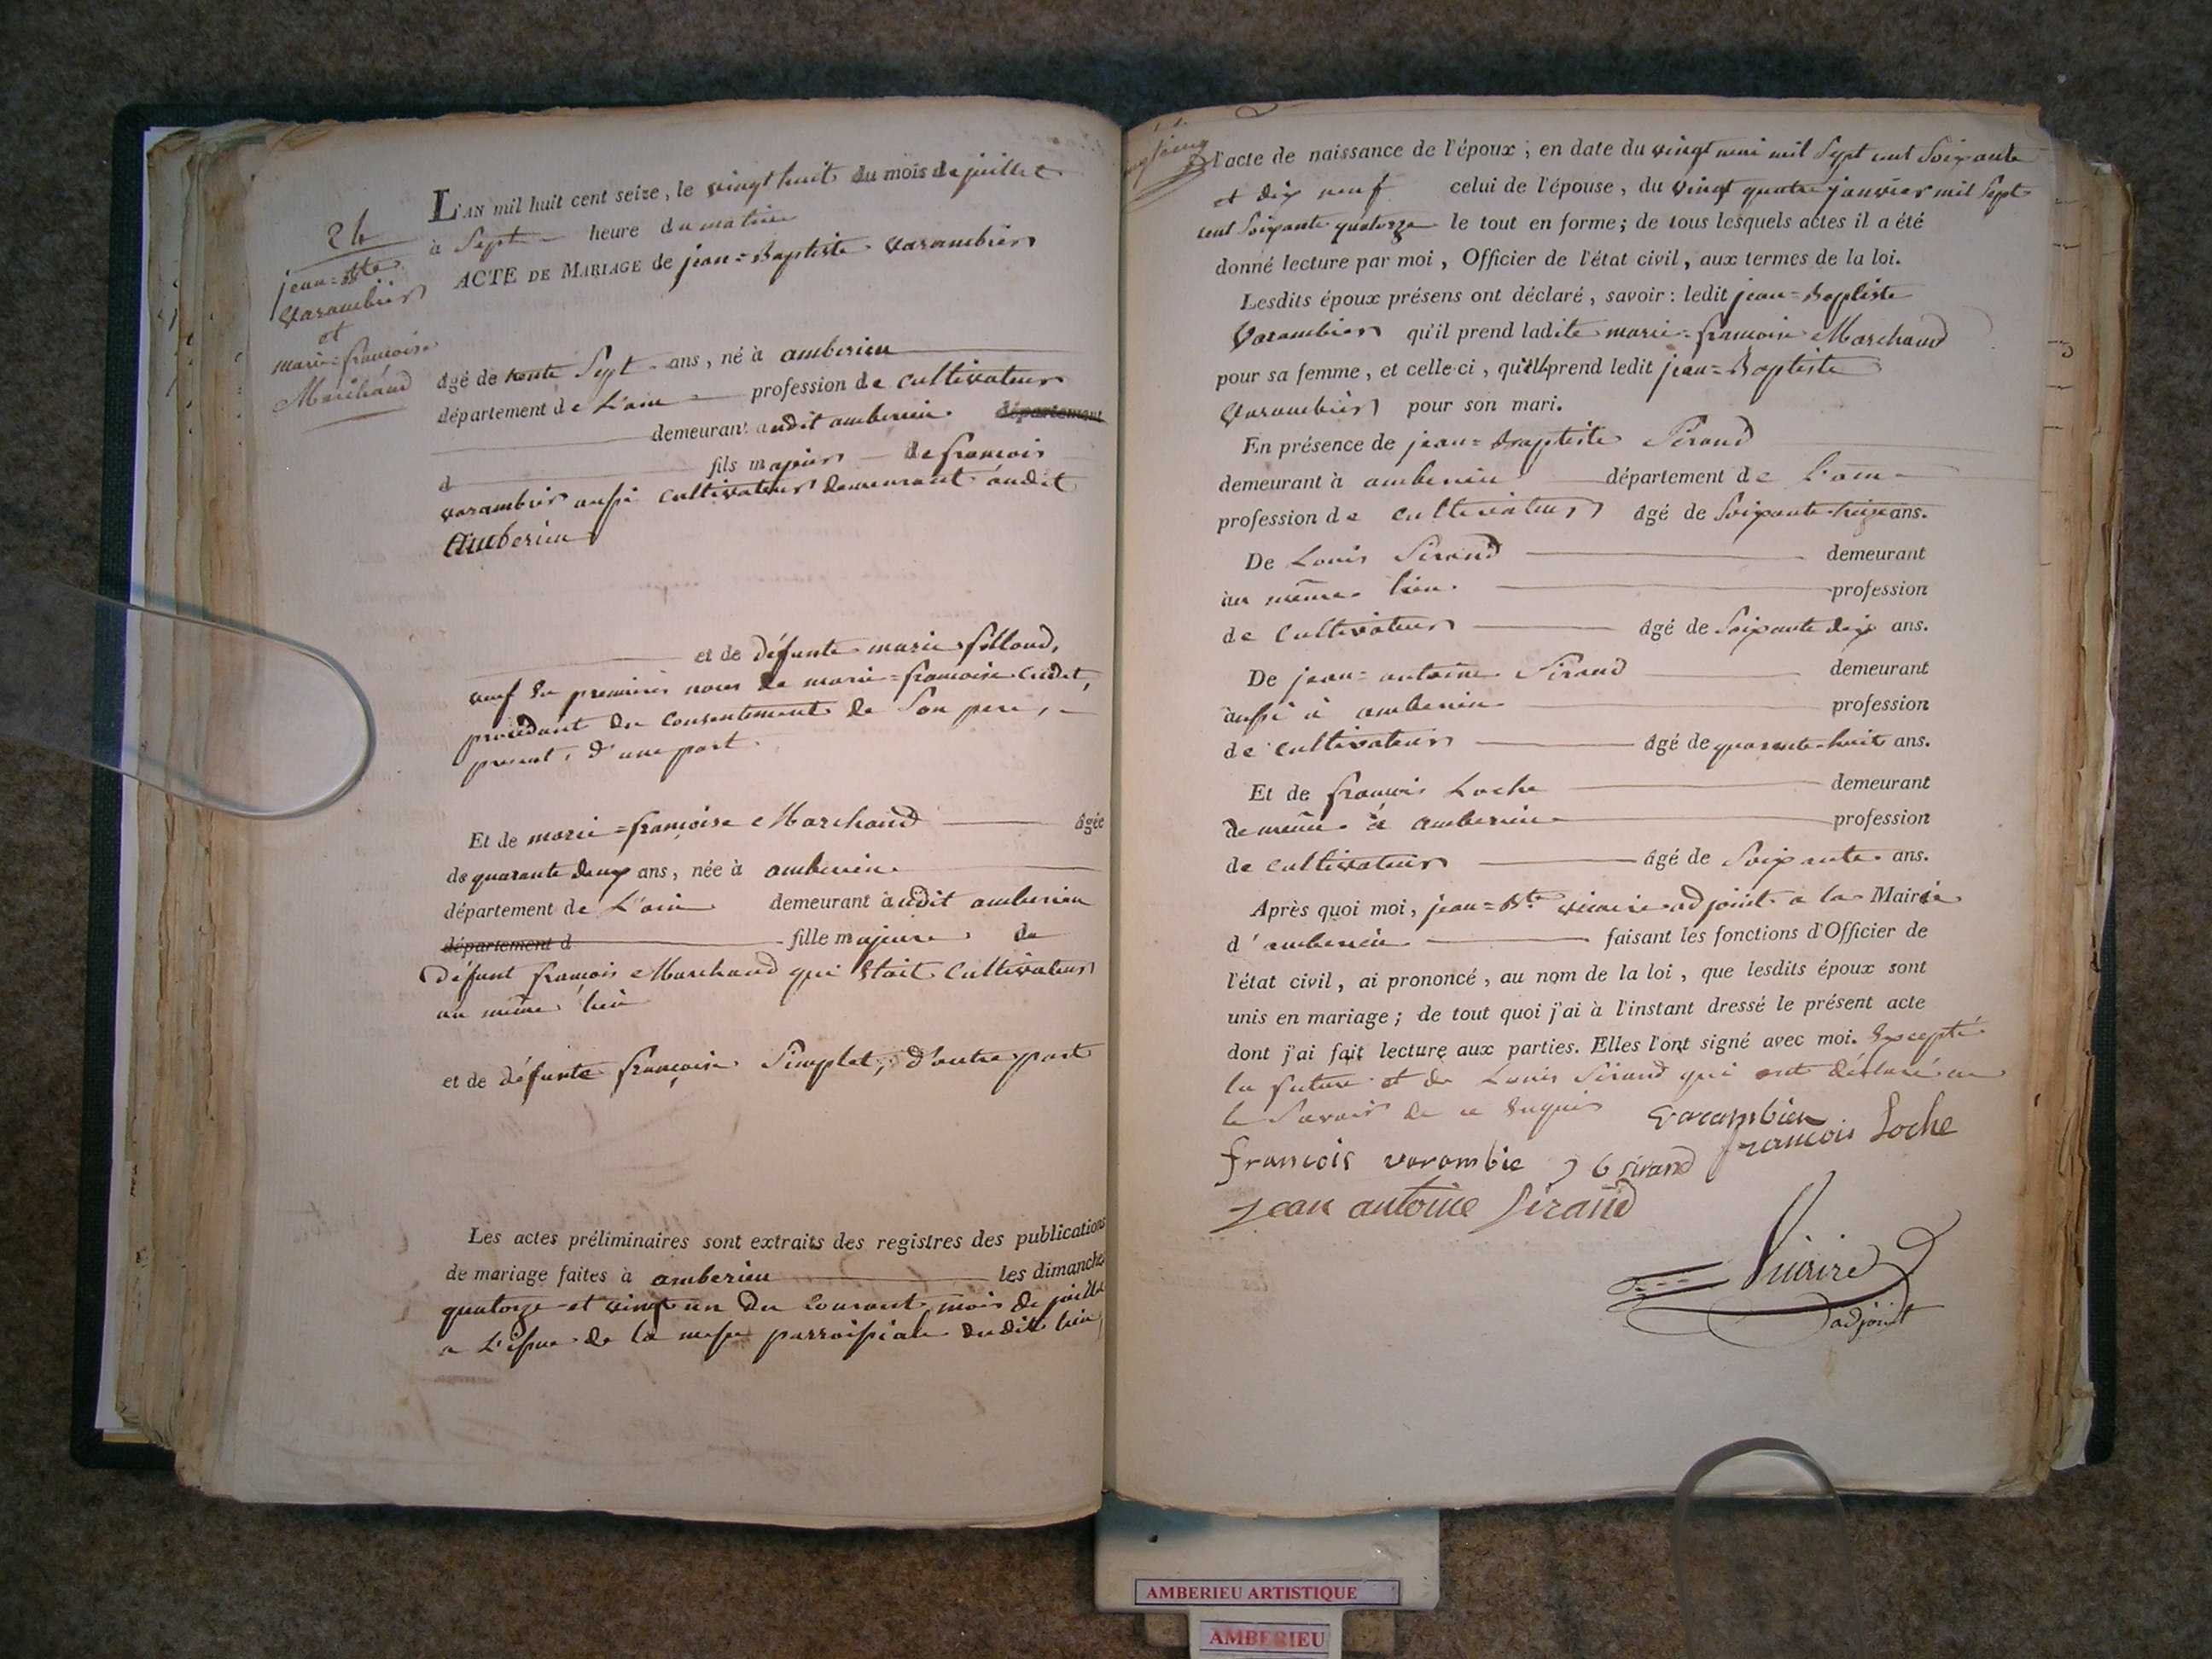 24
jean=Bte
Varambier
et
marie=françoise
Marchand
L'AN mil huit cent seize, le vingt huit du mois de juillet
à Sept heure du matin
ACTE DE MARIAGE de jean=Baptiste Varambier
âgé de trente Sept ans, né à amberieu
département de L'ain profession de Cultivateur
demeurant audit amberieu département
d fils majeur de françois
varambier aussi Cultivateur demeurant audit
Amberieu
et de défunte marie
veuf en premieres noces de marie=françoise Cudet,
procédant du consentement de Son pere,
present, d'une part.
Et de marie=françoise Marchand âgée
de quarante deux ans, née à amberieu
département de L'ain demeurant audit amberieu
département d fille majeure de
défunt françois Marchand qui était Cultivateur
au même lieu
et de défunte françoise Simplet, d'autre part
Les actes préliminaires sont extraits des registres des publications
de mariage faites à amberieu les dimanches
quatorze et vingt un du courant mois de juillet
a L'issue de la messe parroissiale dudit lieu,
l'acte de naissance de l'époux; en date du vingt mai mil Sept cent Soixante
et dix neuf celui de l'épouse, du vingt quatre janvier mil Sept
cent Soixante quatorze le tout en forme; de tous lesquels actes il a été
donné lecture par moi, Officier de l'état civil, aux termes de la loi.
Lesdits époux présens ont déclaré, savoir: ledit jean=Baptiste
Varambier qu'il prend ladite marie=francoise Marchand
pour sa femme, et celle-ci, qu'elle prend ledit jean=Baptiste
Varambier pour son mari.
En présence de jean=Baptiste Sirand
demeurant à amberieu département de L'ain
profession de cultivateur âgé de Soixante-treize ans.
De Louis Sirand demeurant
au même lieu. profession
de Cultivateur âgé de Soixante dix ans.
De jean=antoine Sirand demeurant
aussi à amberieu profession
de Cultivateur âgé de quarante-huit ans.
Et de françois Loche demeurant
de même à amberieu profession
de cultivateur âgé de Soixante ans.
Après quoi moi, jean=Bte adjoint a la Mairie
d'amberieu faisant les fonctions d'Officier de
l'état civil, ai prononcé, au nom de la loi, que lesdits époux sont
unis en mariage; de tout quoi j'ai à l'instant dressé le présent acte
dont j'ai fait lecture aux parties. Elles l'ont signé avec moi. Excepté
la future et de Louis Sirand qui ont déclaré ne
le Savoir de ce Enquis Varambier
francois Loche
francois varambie J b sirand
jean antoine Sirand
adjoint
AMBERIEU ARTISTIQUE
AMBERIEU